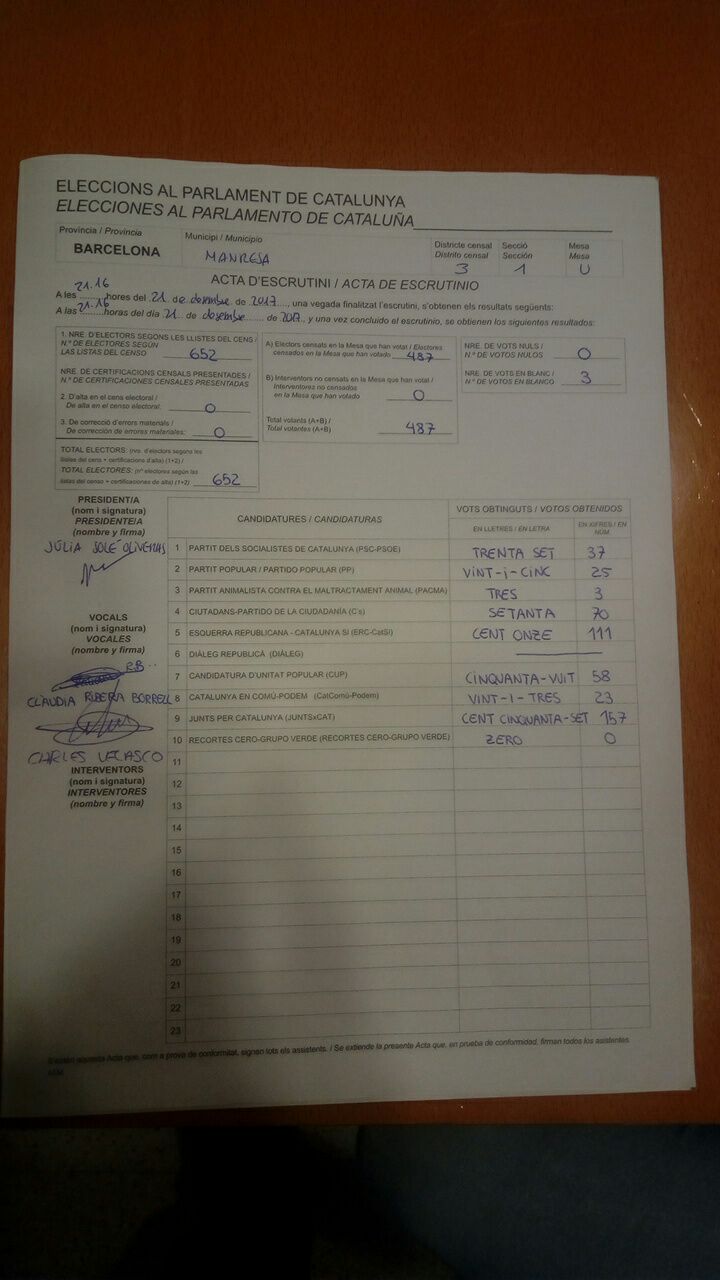 ELECCIONS AL PARLAMENT DE CATALUNYA
ELECCIONES AL PARLAMENTO DE CATALUÑA
Provincia / Provincia
BARCELONA
Municipi / Municipio
MANRESA
Districte censal
Distrito censal
3
Secció
Sección
1
Mesa
Mesa
U
ACTA D'ESCRUTINI / ACTA DE ESCRUTINIO
A les 21.16 hores del 21 de desembre de 2017, una vegada finalitzat l'escrutini, s'obtenen els resultats següents:
A las 21.16 horas del día 21 de desembre de 2017, y una vez concluido el escrutinio, se obtienen los siguientes resultados:
1. NRE. D'ELECTORS SEGONS LES LLISTES DEL CENS /
N.º DE ELECTORES SEGÚN
LAS LISTAS DEL CENSO 652
NRE. DE CERTIFICACIONS CENSALS PRESENTADES /
N.º DE CERTIFICACIONES CENSALES PRESENTADAS
2. D'alta en el cens electoral /
De alta en el censo electoral: 0
3. De correcció d'errors materials /
De corrección de errores materiales: 0
TOTAL ELECTORS: (nre. d'electors segons les
llistes del cens + certificacions d'alta) (1+2) /
TOTAL ELECTORES: (nº electores según las
listas del censo + certificaciones de alta) (1+2) 652
A) Electors censats en la Mesa que han votat / Electores
censados en la Mesa que han votado 487
B) Interventors no censats en la Mesa que han votat /
Interventores no censados
en la Mesa que han votado 0
Total votants (A+B) /
Total votantes (A+B) 487
NRE. DE VOTS NULS /
N.º DE VOTOS NULOS 0
NRE. DE VOTS EN BLANC /
N.º DE VOTOS EN BLANCO 3
PRESIDENT/A
(nom i signatura)
PRESIDENTE/A
(nombre y firma)
JÚLIA SOLÉ OLIVERAS
VOCALS
(nom i signatura)
VOCALES
(nombre y firma)
R.B.
CLAUDIA RIBERA BORRELL
CHARLES VELASCO
INTERVENTORS
(nom i signatura)
INTERVENTORES
(nombre y firma)
CANDIDATURES / CANDIDATURAS
VOTS OBTINGUTS / VOTOS OBTENIDOS
EN LLETRES / EN LETRA
EN XIFRES / EN NÚM.
1 PARTIT DELS SOCIALISTES DE CATALUNYA (PSC-PSOE) TRENTA SET 37
2 PARTIT POPULAR / PARTIDO POPULAR (PP) VINT-i-CINC 25
3 PARTIT ANIMALISTA CONTRA EL MALTRACTAMENT ANIMAL (PACMA) TRES 3
4 CIUTADANS-PARTIDO DE LA CIUDADANÍA (C's) SETANTA 70
5 ESQUERRA REPUBLICANA - CATALUNYA SÍ (ERC-CatSí) CENT ONZE 111
6 DIÀLEG REPUBLICÀ (DIÀLEG)
7 CANDIDATURA D'UNITAT POPULAR (CUP) CINQUANTA-VUIT 58
8 CATALUNYA EN COMÚ-PODEM (CatComú-Podem) VINT-I-TRES 23
9 JUNTS PER CATALUNYA (JUNTSxCAT) CENT CINQUANTA-SET 157
10 RECORTES CERO-GRUPO VERDE (RECORTES CERO-GRUPO VERDE) ZERO 0
11
12
13
14
15
16
17
18
19
20
21
22
23
aquesta Acta que, com a prova de conformitat, signen tots els assistents. / Se extiende la presente Acta que, en prueba de conformidad, firman todos los asistentes.